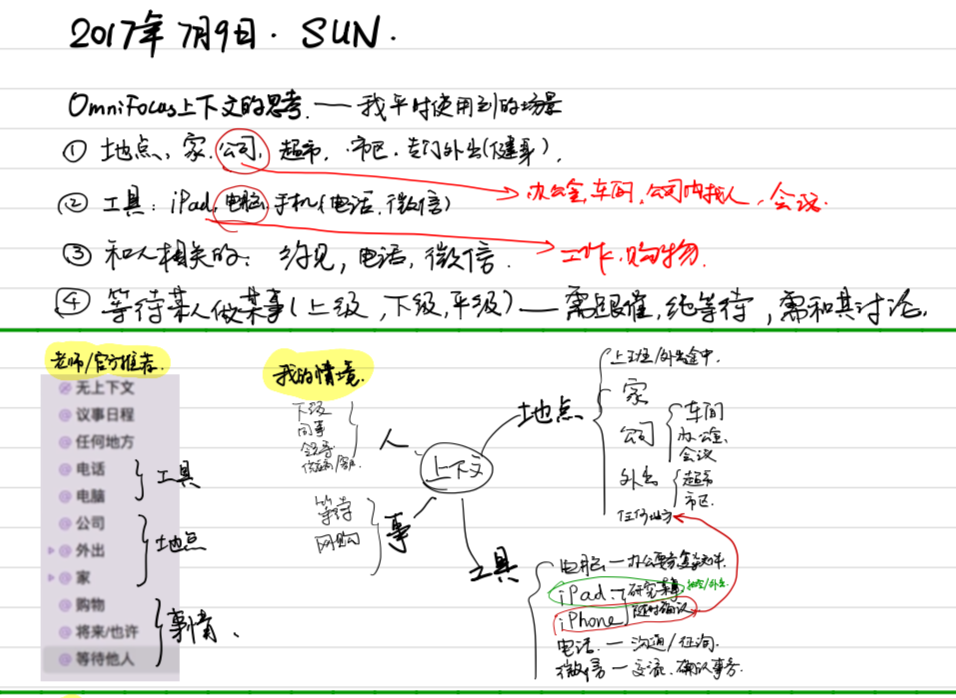 2017年7月9日. SUN.
OmniFocus上下文的思考. — 我平时使用到的场景
① 地点、家.公司, 超市, 市区、专门外出(健身),
办公室,车间,公司内找人,会议.
② 工具: iPad,电脑,手机(电话,微信)
③ 和人相关的: 约见,电话,微信.
工作.购物.
④ 等待某人做某事(上级,下级,平级) — 需跟催,纯等待,需和其讨论.
老师/官方推荐.
无上下文
议事日程
任何地方
电话
电脑
工具
公司
外出
家
地点
购物
将来/也许
等待他人
事情、
我的情境.
上下文
人
下级
同事
领导
事
等待
网购
地点
上班/外出途中.
家
公司
车间
办公室
会议
外出
超市
市区.
任何地方
工具
电脑 —
iPad — 研究某事
iPhone 随时确认
电话. — 沟通/
微信 — 交流.确认事务.